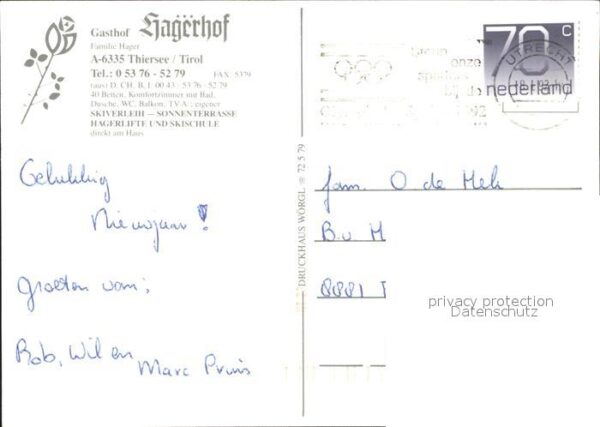 Gasthof Hagerhof
Familie Hager
A-6335 Thiersee / Tirol
Tel.: 0 53 76 - 52 79 FAX 5379
(aus) D, CH, B, I: 00 43 / 53 76 - 52 79
40 Betten, Komfortzimmer mit Bad,
Dusche, WC, Balkon, TV A : eigener
SKIVERLEIH — SONNENTERRASSE
HAGERLIFTE UND SKISCHULE
direkt am Haus
Gelukkig
Nieuwjaar!
groeten van:
Rob, Wil en
Marc Pruis
DRUCKHAUS WÖRGL 72 5 79
70 c
nederland
UTRECHT
onze
92
fam. O de Mek
B.v M
8881
privacy protection
Datenschutz